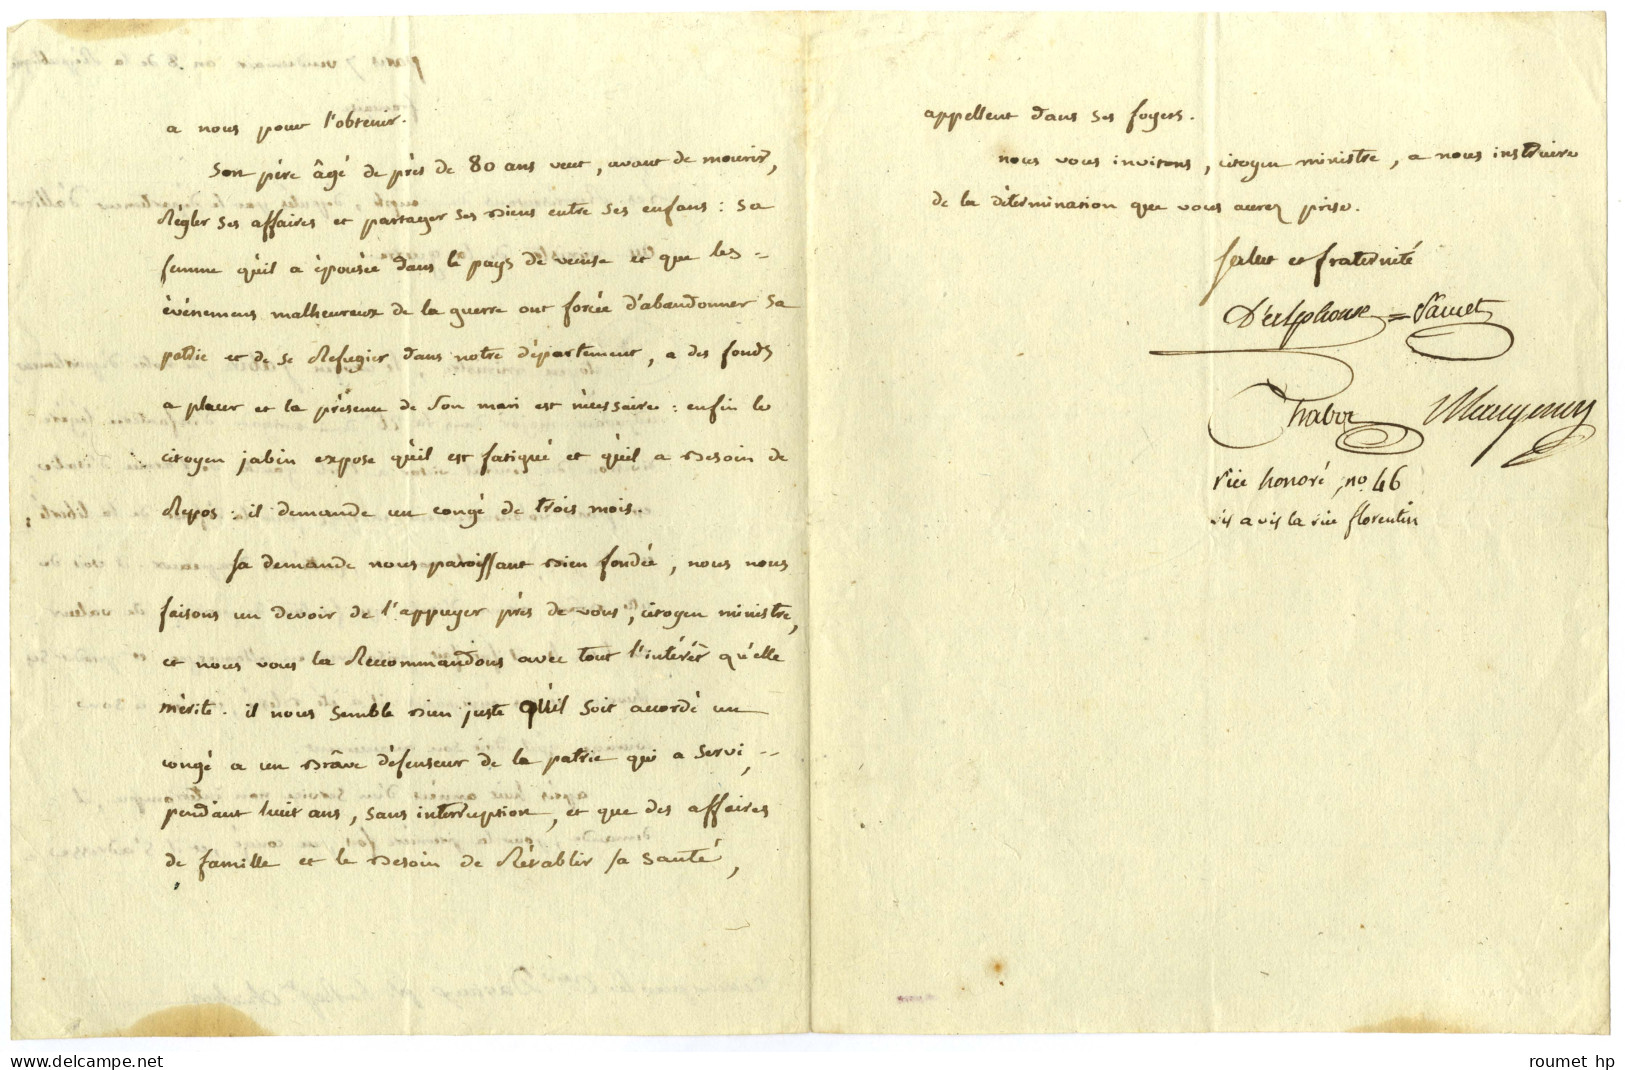 a nous pour l'obtenir.
Son père âgé de près de 80 ans veut, avant de mourir,
Régler ses affaires et partager ses biens entre ses enfans : sa
femme qu'il a épousée dans le pays de venise et que les
événemens malheureux de la guerre ont forcée d'abandonner sa
patrie et de se Réfugier dans notre département, a des fonds
a placer et la présence de son mari est nécessaire : enfin le
citoyen jabin expose qu'il est fatigué et qu'il a besoin de
Repos : il demande un congé de trois mois.
sa demande nous paroissant bien fondée, nous nous
faisons un devoir de l'appuyer près de vous, citoyen ministre,
et nous vous la Recommandons avec tout l'intérêt qu'elle
mérite. il nous semble bien juste qu'il soit accordé un
congé a un brâve défenseur de la patrie qui a servi,
pendant huit ans, sans interruption, et que des affaires
de famille et le besoin de Rétablir sa santé,
appellent dans ses foyers.
nous vous invitons, citoyen ministre, a nous instruire
de la détermination que vous aurez prise.
salut et fraternité
Chabot
rüe honoré, no. 46
vis a vis la rüe florentin
delcampe.net
roumet_hp